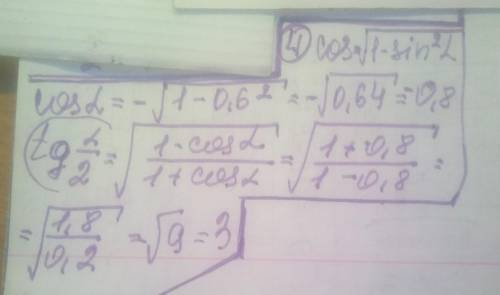 ④ cos=√1-sin²α
cosα=-√1-0,6²=-√0,64=-0,8
tg α/2=√(1-cosα)/(1+cosα)=√(1+0,8)/(1-0,8)=
=√1,8/0,2=√9=3